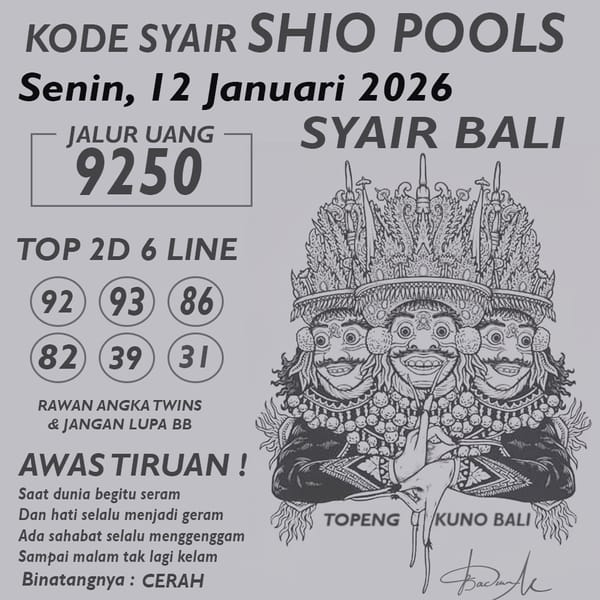 KODE SYAIR SHIO POOLS
Senin, 12 Januari 2026
SYAIR BALI
JALUR UANG
9250
TOP 2D 6 LINE
92 93 86
82 39 31
RAWAN ANGKA TWINS
& JANGAN LUPA BB
AWAS TIRUAN !
Saat dunia begitu seram
Dan hati selalu menjadi geram
Ada sahabat selalu menggenggam
Sampai malam tak lagi kelam
Binatangnya : CERAH
TOPENG KUNO BALI